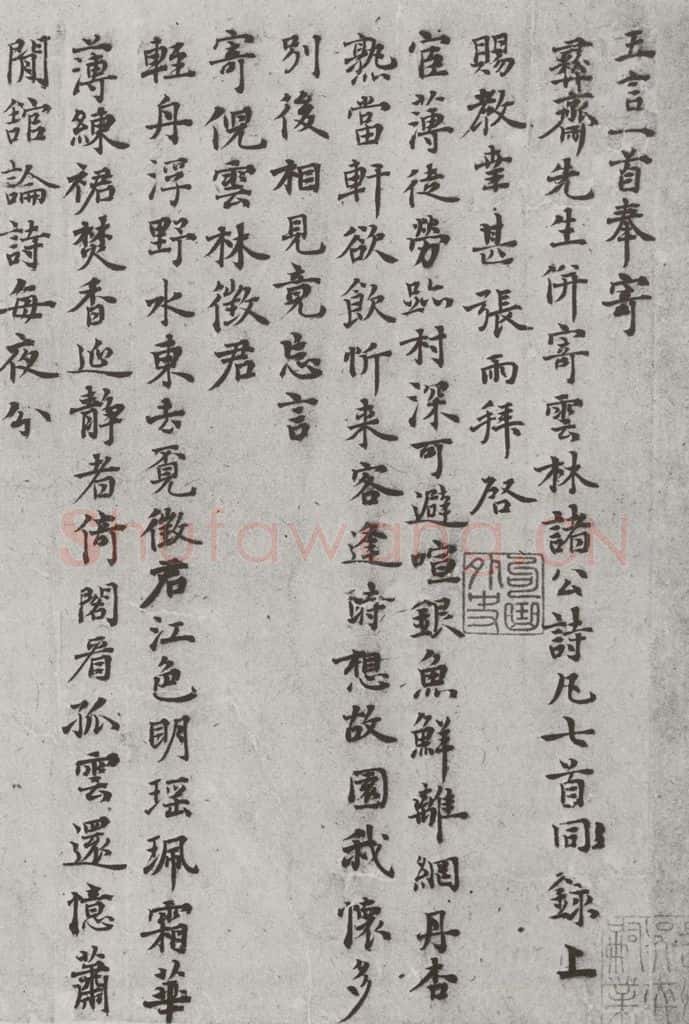 五言一首奉寄
彛齋先生併寄雲林諸公詩凡七首同錄上
賜教幸甚張雨拜啓
宦薄徒勞跡村深可避喧銀魚鮮離網丹杏
熟當軒欲飲忻来客逢時想故園我懷多
別後相見竟忘言
寄倪雲林徵君
輕舟浮野水東去覓徵君江色明瑶珮霜華
薄練裙焚香延靜者倚閣看孤雲還憶蕭
閒館論詩每夜分
Shufawang.CN
句曲外史